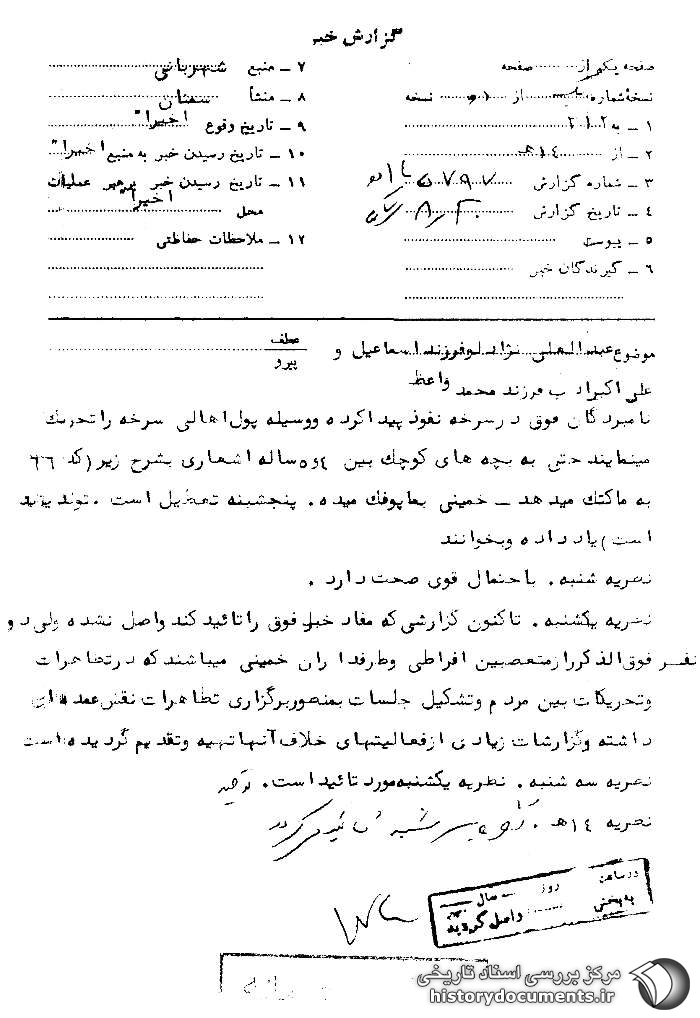 گزارش خبر
صفحه یکم از صفحه
نسخهٔ شماره از نسخه
۱ ـ به ۳۱۲
۲ ـ از ۱۴ هـ
۳ ـ شماره گزارش ۵۷۹۷
۴ ـ تاریخ گزارش
۵ ـ پیوست
۶ ـ گیرندگان خبر
۷ ـ منبع شهربانی
۸ ـ منشأ سمنان
۹ ـ تاریخ وقوع اخیراً
۱۰ ـ تاریخ رسیدن خبر به منبع اخیراً
۱۱ ـ تاریخ رسیدن خبر برهبر عملیات
محل اخیراً
۱۲ ـ ملاحظات حفاظتی
موضوع عبدالعلی نژاد لو فرزند اسماعیل و
عطف
پیرو
علی اکبر ادب فرزند محمد واعظ
نامبردگان فوق در سرخه نفوذ پیدا کرده و وسیله پول اهالی سرخه را تحریک
مینمایند حتی به بچه های کوچک بین ۴و۵ ساله اشعاری بشرح زیر (کد ۶۶
به ماکتک میدهد ـ خمینی بماپوفک میده . پنجشبنه تعطیل است .
است) یاد داده و بخوانند
نظریه شنبه . باحتمال قوی صحت دارد .
نظریه یکشنبه . تاکنون گزارشی که مفاد خبر فوق را تائید کند واصل نشده ولی دو
نفر فوق الذکر از متعصبین افراطی وطرفداران خمینی میباشند که در تظاهرات
وتحریکات بین مردم وتشکیل جلسات بمنظور برگزاری تظاهرات نقش عمده ای
داشته وگزارشات زیادی از فعالیتهای خلاف آنها تهیه وتقدیم گردیده است
نظریه سه شنبه . نظریه یکشنبه مورد تائید است .
نظریه ۱۴ هـ .
در ساعت روز سال
به بخش واصل گردید
مرکز بررسی اسناد تاریخی
historydocuments.ir